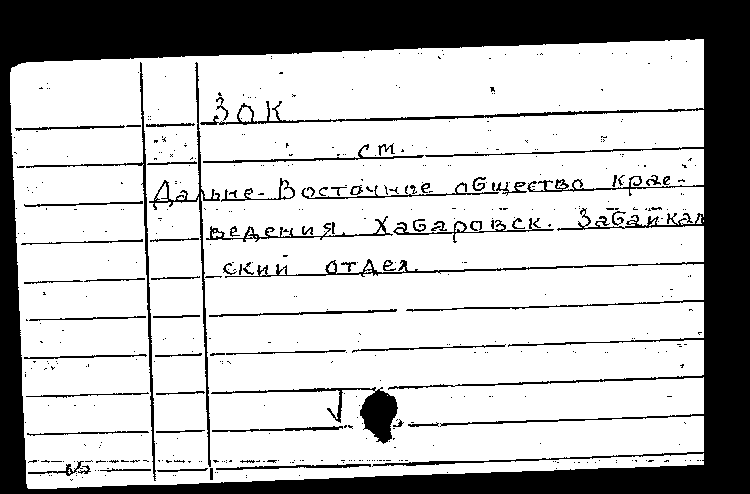 ЗОК
ст.
Дальне-Восточное общество крае-
ведения. Хабаровск. Забайкал
ский отдел.